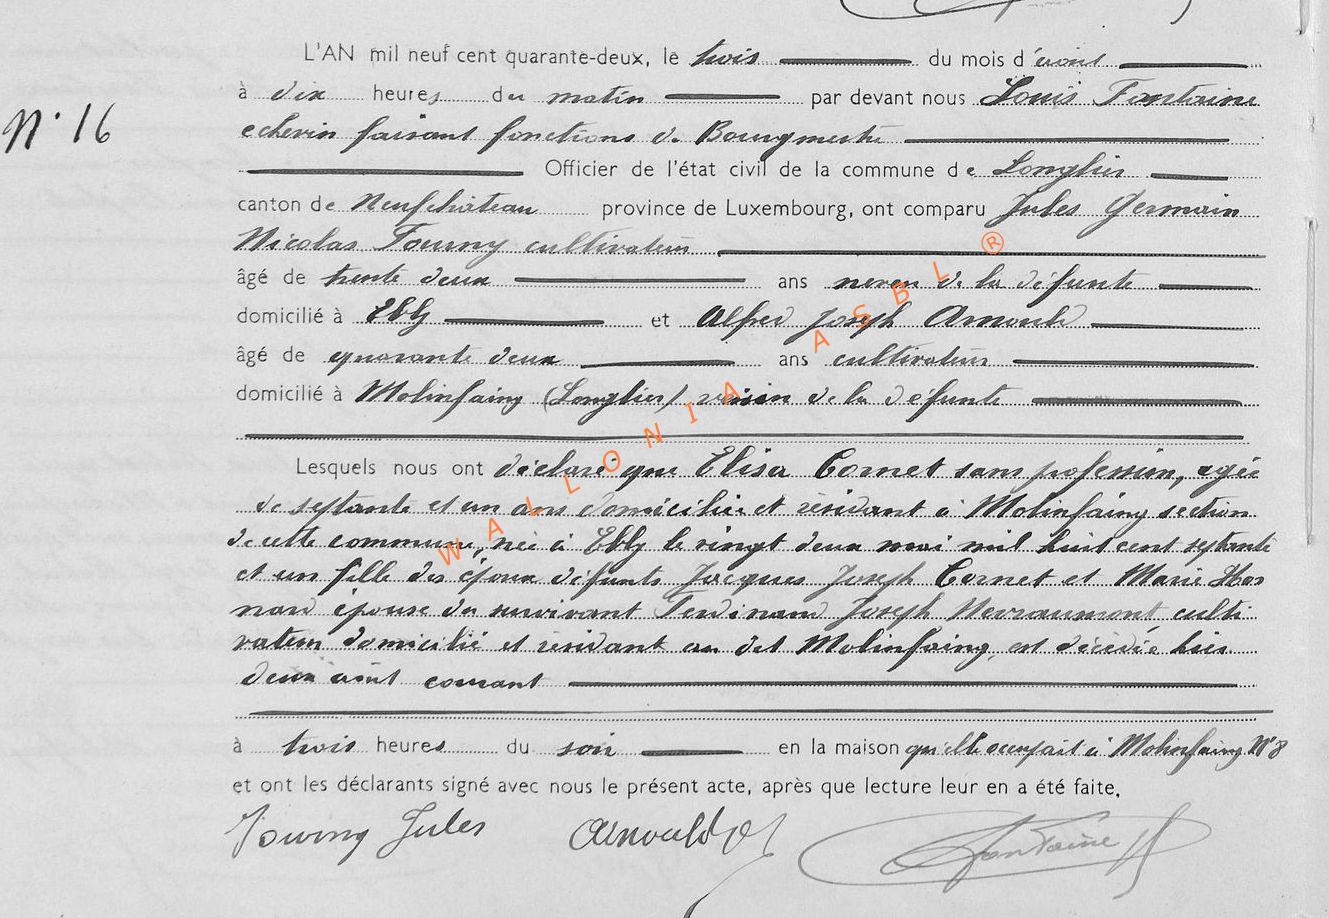 L'AN mil neuf cent quarante-deux, le trois du mois d'août
N° 16
à dix heures du matin par devant nous Louis Fontaine
echevin faisant fonctions de Bourgmestre
Officier de l'état civil de la commune de Longlier
canton de Neufchâteau province de Luxembourg, ont comparu Jules Germain
Nicolas Tourny cultivateur
âgé de trente deux ans neveu de la défunte
domicilié à Ebly et Alfred Joseph Arnould
âgé de quarante deux ans cultivateur
domicilié à Molinfaing (Longlier) voisin de la défunte
Lesquels nous ont déclaré que Elisa Cornet sans profession, agée
de septante et un ans domiciliée et résidant à Molinfaing section
de cette commune, née à Ebly le vingt deux mai mil huit cent septante
et un fille des époux défunts Jacques Joseph Cornet et Marie
épouse du survivant Ferdinand Joseph Nevraumont culti
vateur domicilié et résidant au dit Molinfaing, est décédée hier
deux août courant
à trois heures du soir en la maison qu'elle occupait à Molinfaing N°8
et ont les déclarants signé avec nous le présent acte, après que lecture leur en a été faite,
Jules Arnould Fontaine
WALLONIA ASBL ®